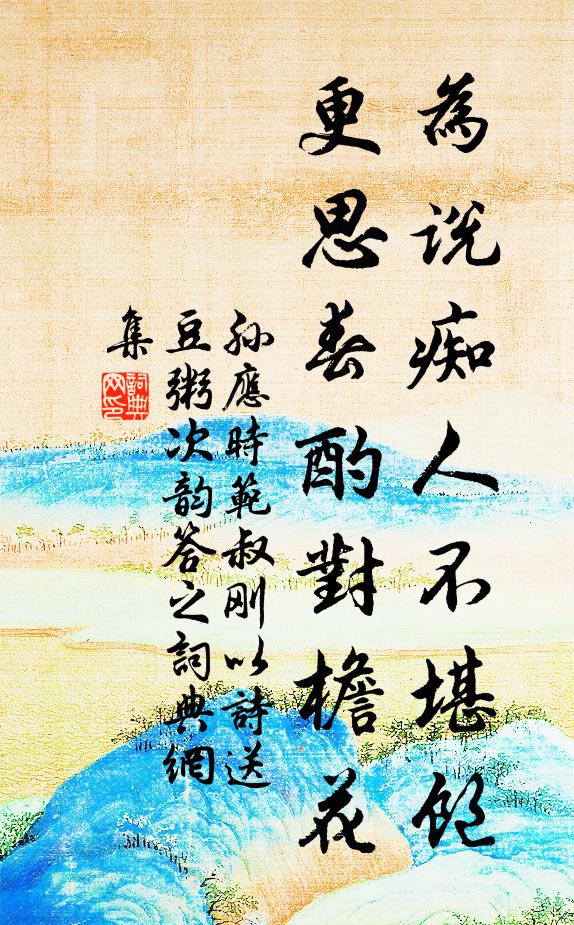 為說痴人不堪飽
更思春酌對檐花
孫應時範叔刚以詩送
豆粥次韵答之詞典網
集
詞典
网印